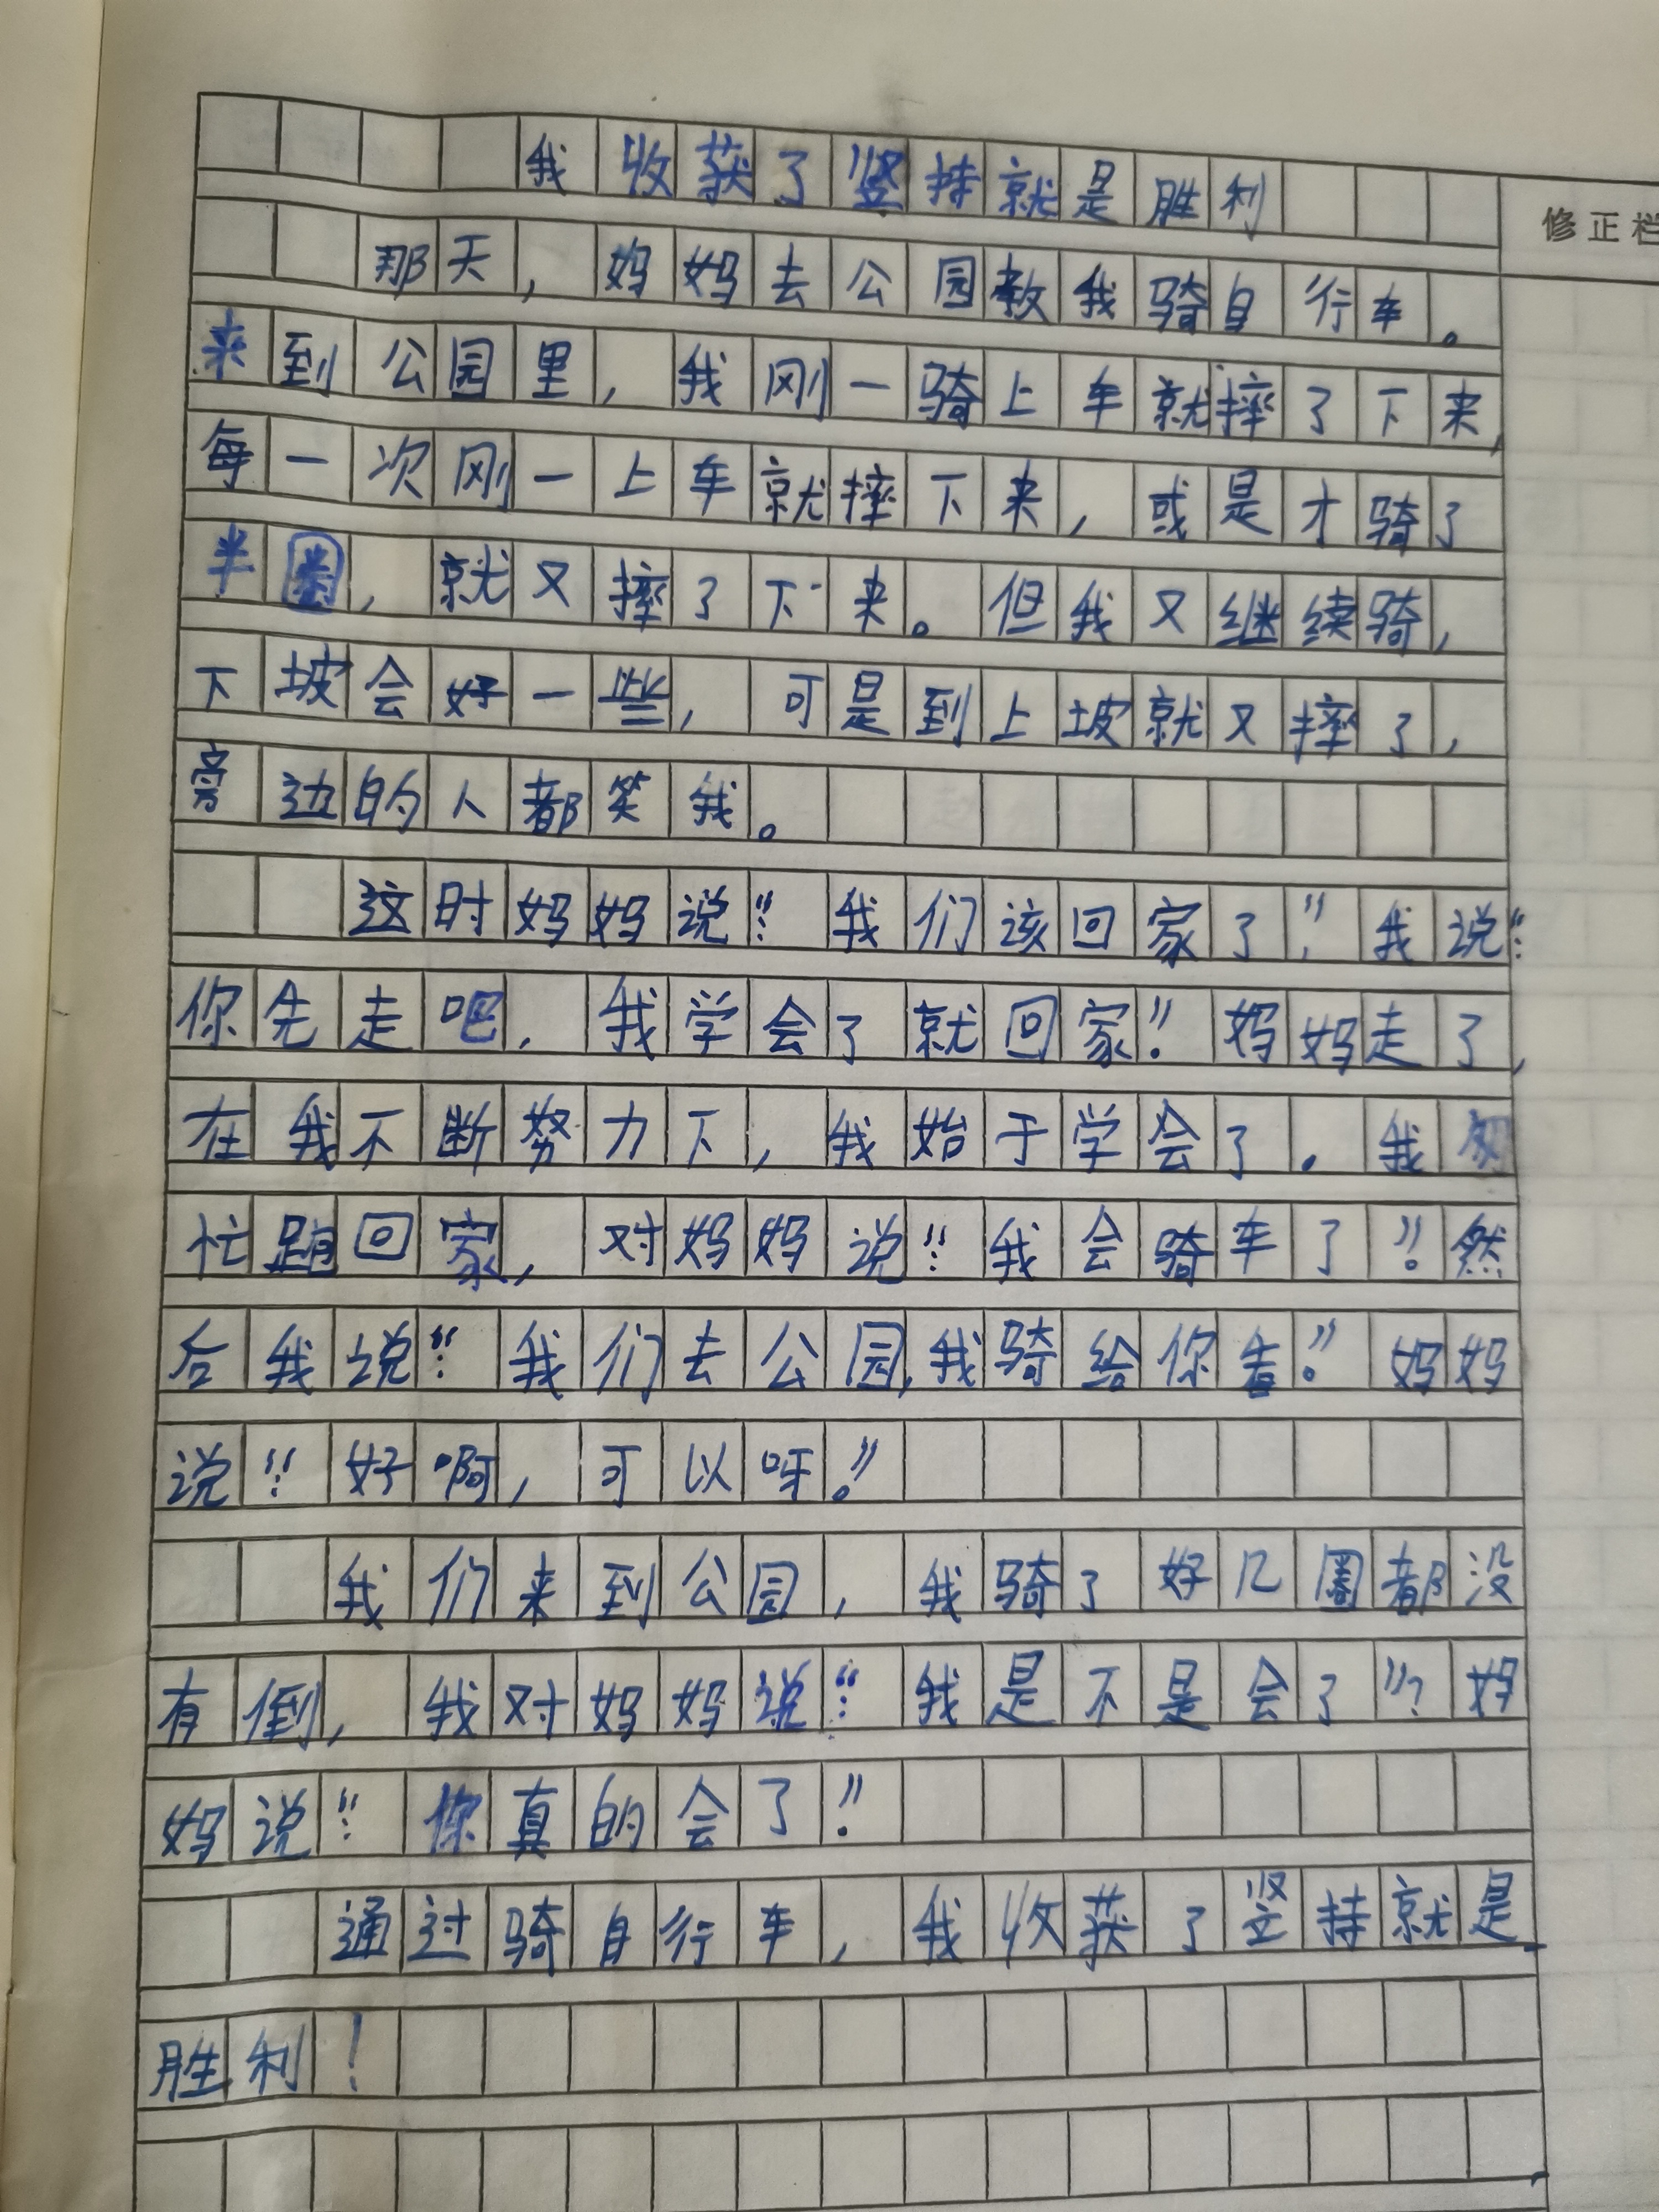 我收获了竖持就是胜利
修正栏
那天，妈妈去公园教我骑自行车。
来到公园里，我刚一骑上车就摔了下来，
每一次刚一上车就摔下来，或是才骑了
半圈，就又摔了下来。但我又继续骑，
下坡会好一些，可是到上坡就又摔了，
旁边的人都笑我。
这时妈妈说：“我们该回家了，”我说：“
你先走吧，我学会了就回家！”妈妈走了，
在我不断努力下，我始于学会了。我匆
忙跑回家，对妈妈说：“我会骑车了！”然
后我说：“我们去公园，我骑给你看。”妈妈
说：“好啊，可以呀！”
我们来到公园，我骑了好几圈都没
有倒，我对妈妈说：“我是不是会了”？妈
妈说：“你真的会了！”
通过骑自行车，我收获了坚持就是
胜利！